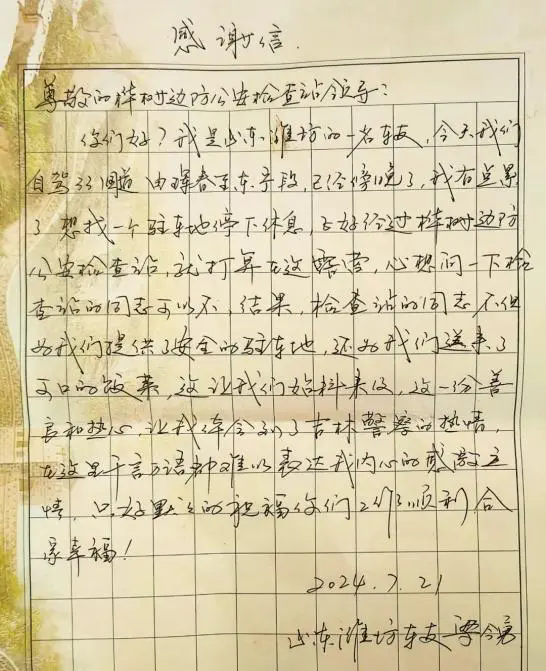 感谢信.
尊敬的桦树边防公安检查站领导:
你们好?我是山东潍坊的一名车友,今天我们
自驾331国道由珲春至东宁段,已经傍晚了,我有点累
了想找一个驻车地停下休息,正好经过桦树边防
公安检查站,就打算在这露营,心想问一下检
查站的同志可以不,结果,检查站的同志不但
为我们提供了安全的驻车地,还为我们送来了
可口的饭菜,这让我们始料未及,这一份善
良和热心让我体会到了吉林警察的热情,
在这里千言万语都难以表达我内心的感激之
情,只好默默的祝福你们工作顺利合
家幸福!
2024.7.21
山东潍坊车友